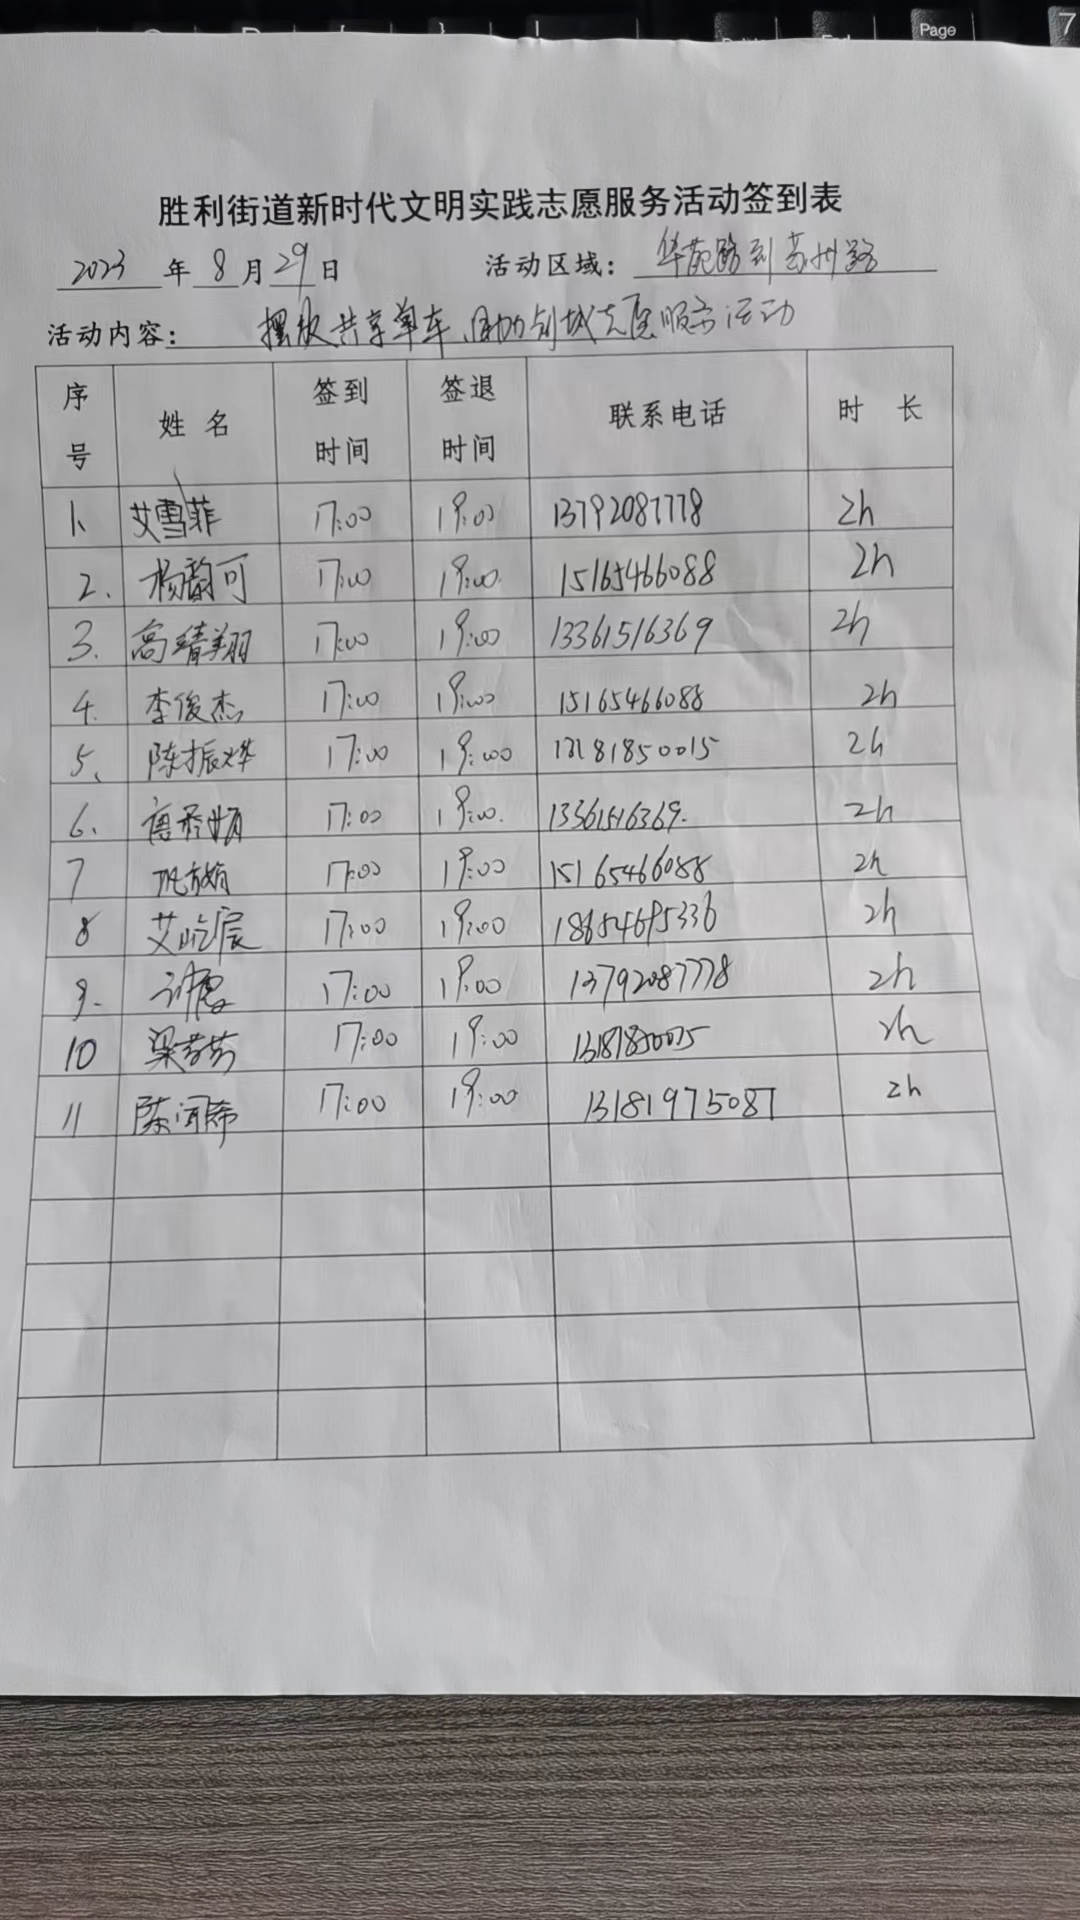 Page
7
胜利街道新时代文明实践志愿服务活动签到表
2023 年 8 月 29 日 活动区域: 华苑路到苏州路
活动内容: 摆放共享单车、助力创城志愿服务活动
序号 姓名 签到时间 签退时间 联系电话 时长
1、 艾雪菲 17:00 19:00 13792087778 2h
2、 杨韵可 17:00 19:00 15165466088 2h
3. 高靖翔 17:00 19:00 13361516369 2h
4. 李俊杰 17:00 19:00 15165466088 2h
5、 陈振烨 17:00 19:00 13181850015 2h
6、 唐秀娟 17:00 19:00. 13361516369. 2h
7 17:00 19:00 15165466088 2h
8 艾屹宸 17:00 19:00 18654695336 2h
9. 17:00 19:00 13792087778 2h
10 梁芳芳 17:00 19:00 13181850015 2h
11 陈闻希 17:00 19:00 13181975087 2h